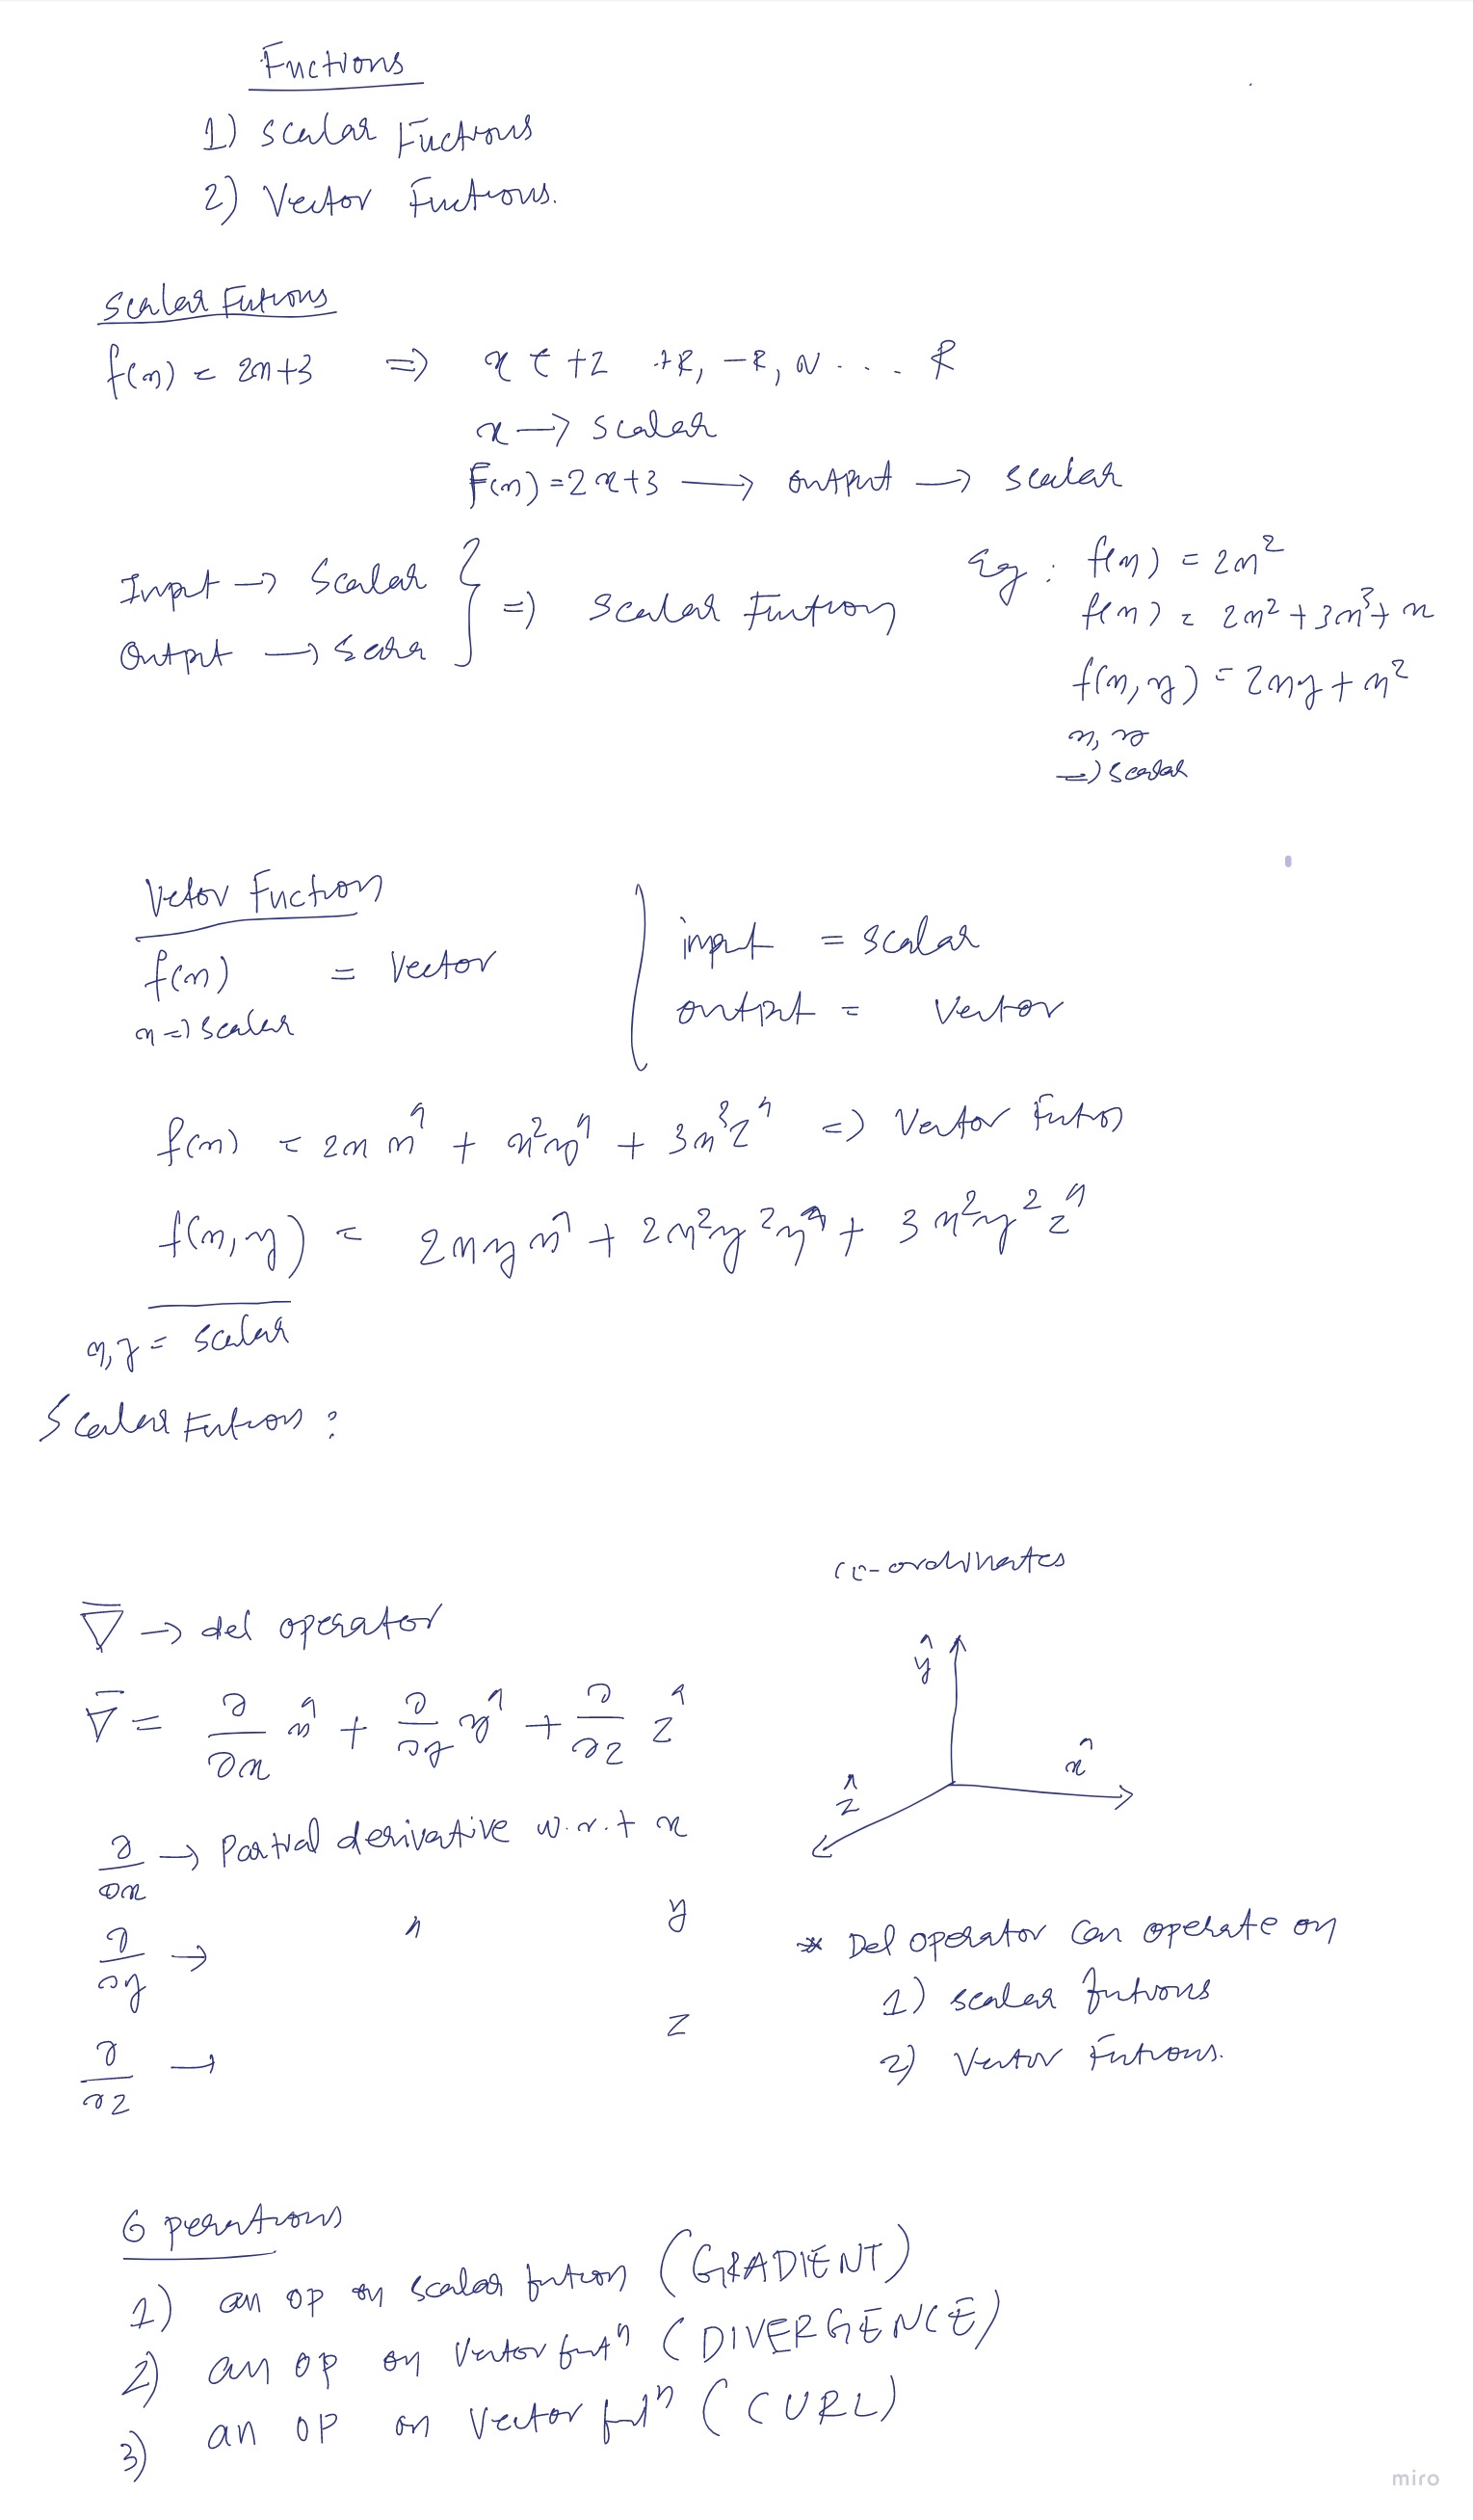 Fuctions
1) Scalar Fuctions
2) Vector Fuctions.
Scalar Futions
f(x) = 2x+3 => x ϵ +Z +R, -R, N . . . . R
x → scalar
F(x) = 2x+3 → output → scalar
Input → Scalar
Output → Scalar
} => Scalar Fution
Eg : f(x) = 2x²
f(x) = 2x² + 3x³ + x
f(x, y) = 2xy + x²
x, y
=> scalar
Vetor Fuction
f(x) = Vector
x => scalar
input = scalar
output = Vector
f(x) = 2x x̂ + x² ŷ + 3x³ ẑ => Vector Futio
f(x, y) = 2xy x̂ + 2x²y² ŷ + 3x²y² ẑ
x, y = scalar
Scalar Futions :
co-ordinates
∇̅ → del operator
∇̅ = ∂/∂x x̂ + ∂/∂y ŷ + ∂/∂z ẑ
ŷ
x̂
ẑ
∂/∂x → Partial derivative w.r.t x
∂/∂y → " y
∂/∂z → z
* Del operator can operate on
1) scalar futions
2) Vector Futions.
Operations
1) an op on scalar fution (GRADIENT)
2) an op on Vector futⁿ (DIVERGENCE)
3) an op on Vector fulⁿ (CURL)
miro